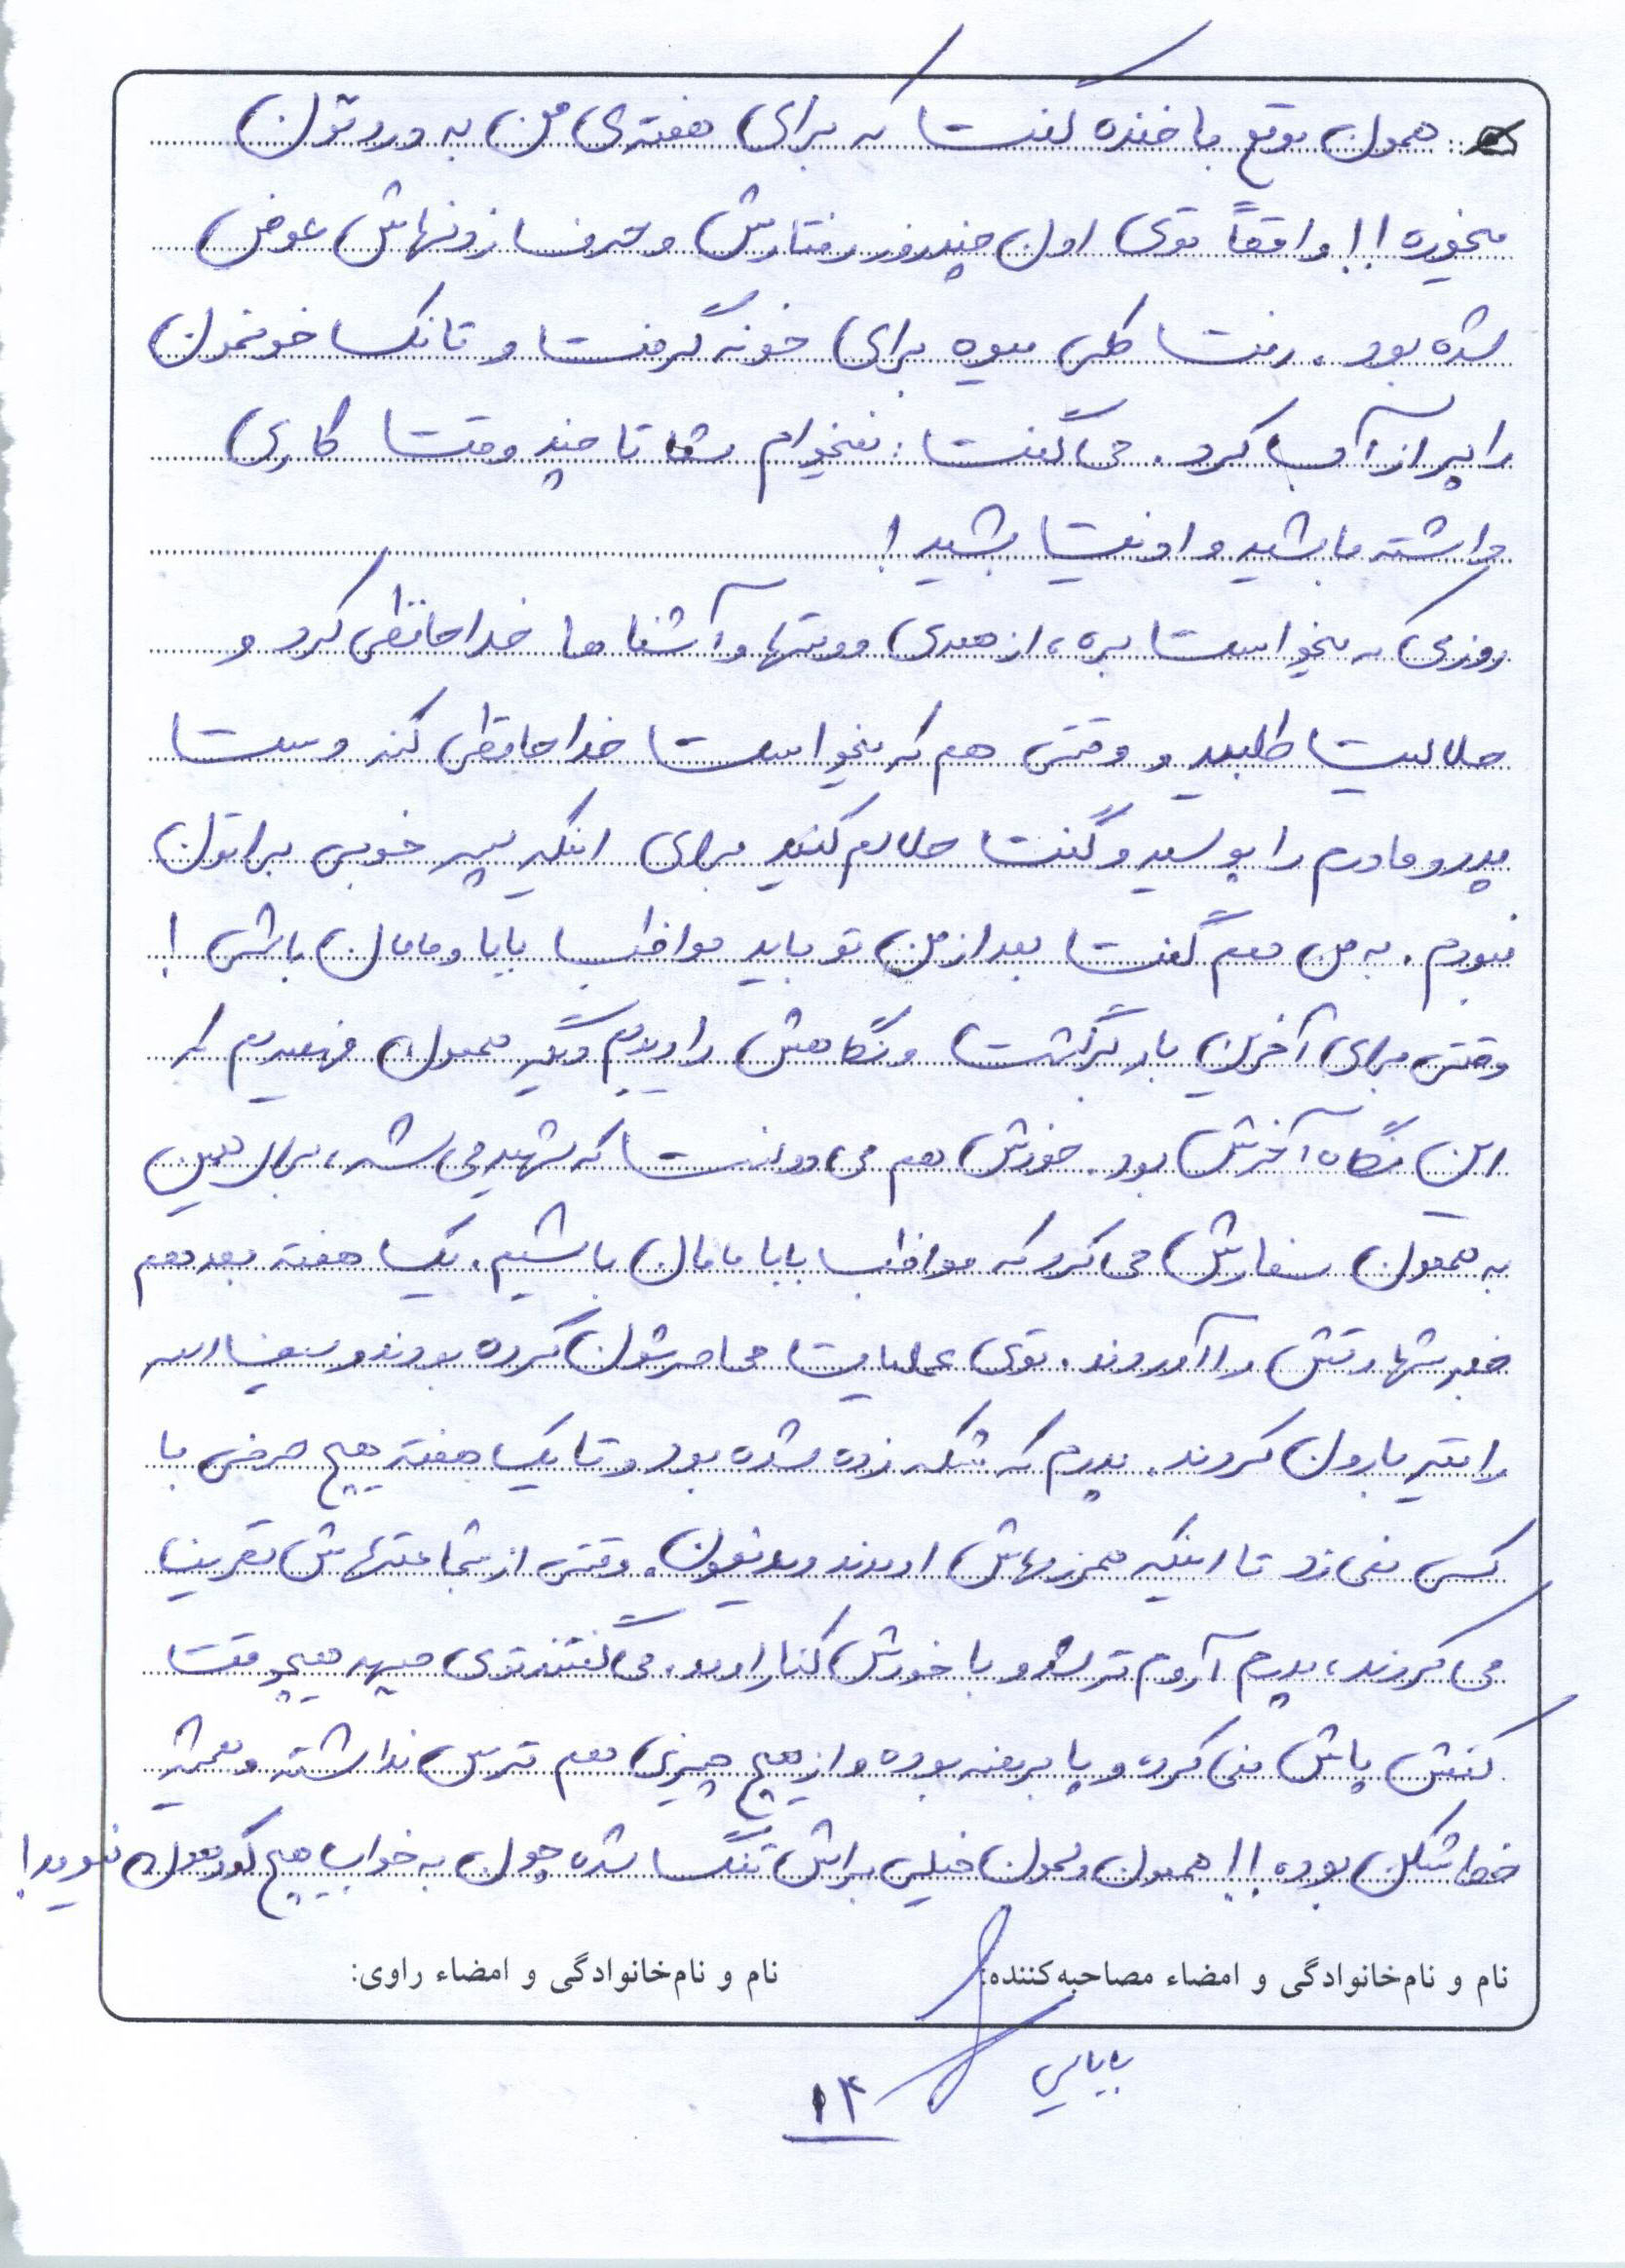 همون موقع با خنده گفت که برای هفته‌ی من به دردتون
میخوره!! واقعاً توی اون چند روز رفتارش و حرف زدنهاش عوض
شده بود. رفت کلی میوه برای خونه گرفت و تانک خونمون
را پر از آب کرد. می گفت: نمیخوام شما تا چند وقت کاری
داشته باشید و اذیت بشید!
روزی که میخواست بره، از همه‌ی دوستها و آشناها خداحافظی کرد و
حلالیت طلبید و وقتی هم که میخواست خداحافظی کند دست
پدر و مادرم را بوسید و گفت حلالم کنید برای اینکه پسر خوبی براتون
نبودم. به من هم گفت بعد از من تو باید مواظب بابا و مامان باشی!
وقتی برای آخرین بار برگشت و نگاهش را دیدم دیگه هممون فهمیدیم که
این نگاه آخرش بود. خودش هم می دونست که شهید می شه، برای همین
به هممون سفارش می کرد که مواظب بابا مامان باشیم. یک هفته بعد هم
خبر شهادتش را آوردند. توی عملیات محاصرشون کرده بودند و سیف الله
را تیر بارون کردند. پدرم که شکه زده شده بود و تا یک هفته هیچ حرفی با
کسی نمی زد تا اینکه همرزمهاش اومدند دیدنمون. وقتی از شجاعتهاش تعریف
می کردند، پدرم آروم تر شد و با خودش کنار اومد. می گفتند توی جبهه هیچوقت
کفش پاش نمی کرده و پا برهنه بوده و از هیچ چیزی هم ترس نداشته و همیشه
خط شکن بوده!! هممون دلمون خیلی براش تنگ شده چون به خواب هیچ کدوممون نمیومد!
نام و نام‌خانوادگی و امضاء مصاحبه‌کننده:
نام و نام‌خانوادگی و امضاء راوی:
بابایی
۱۴